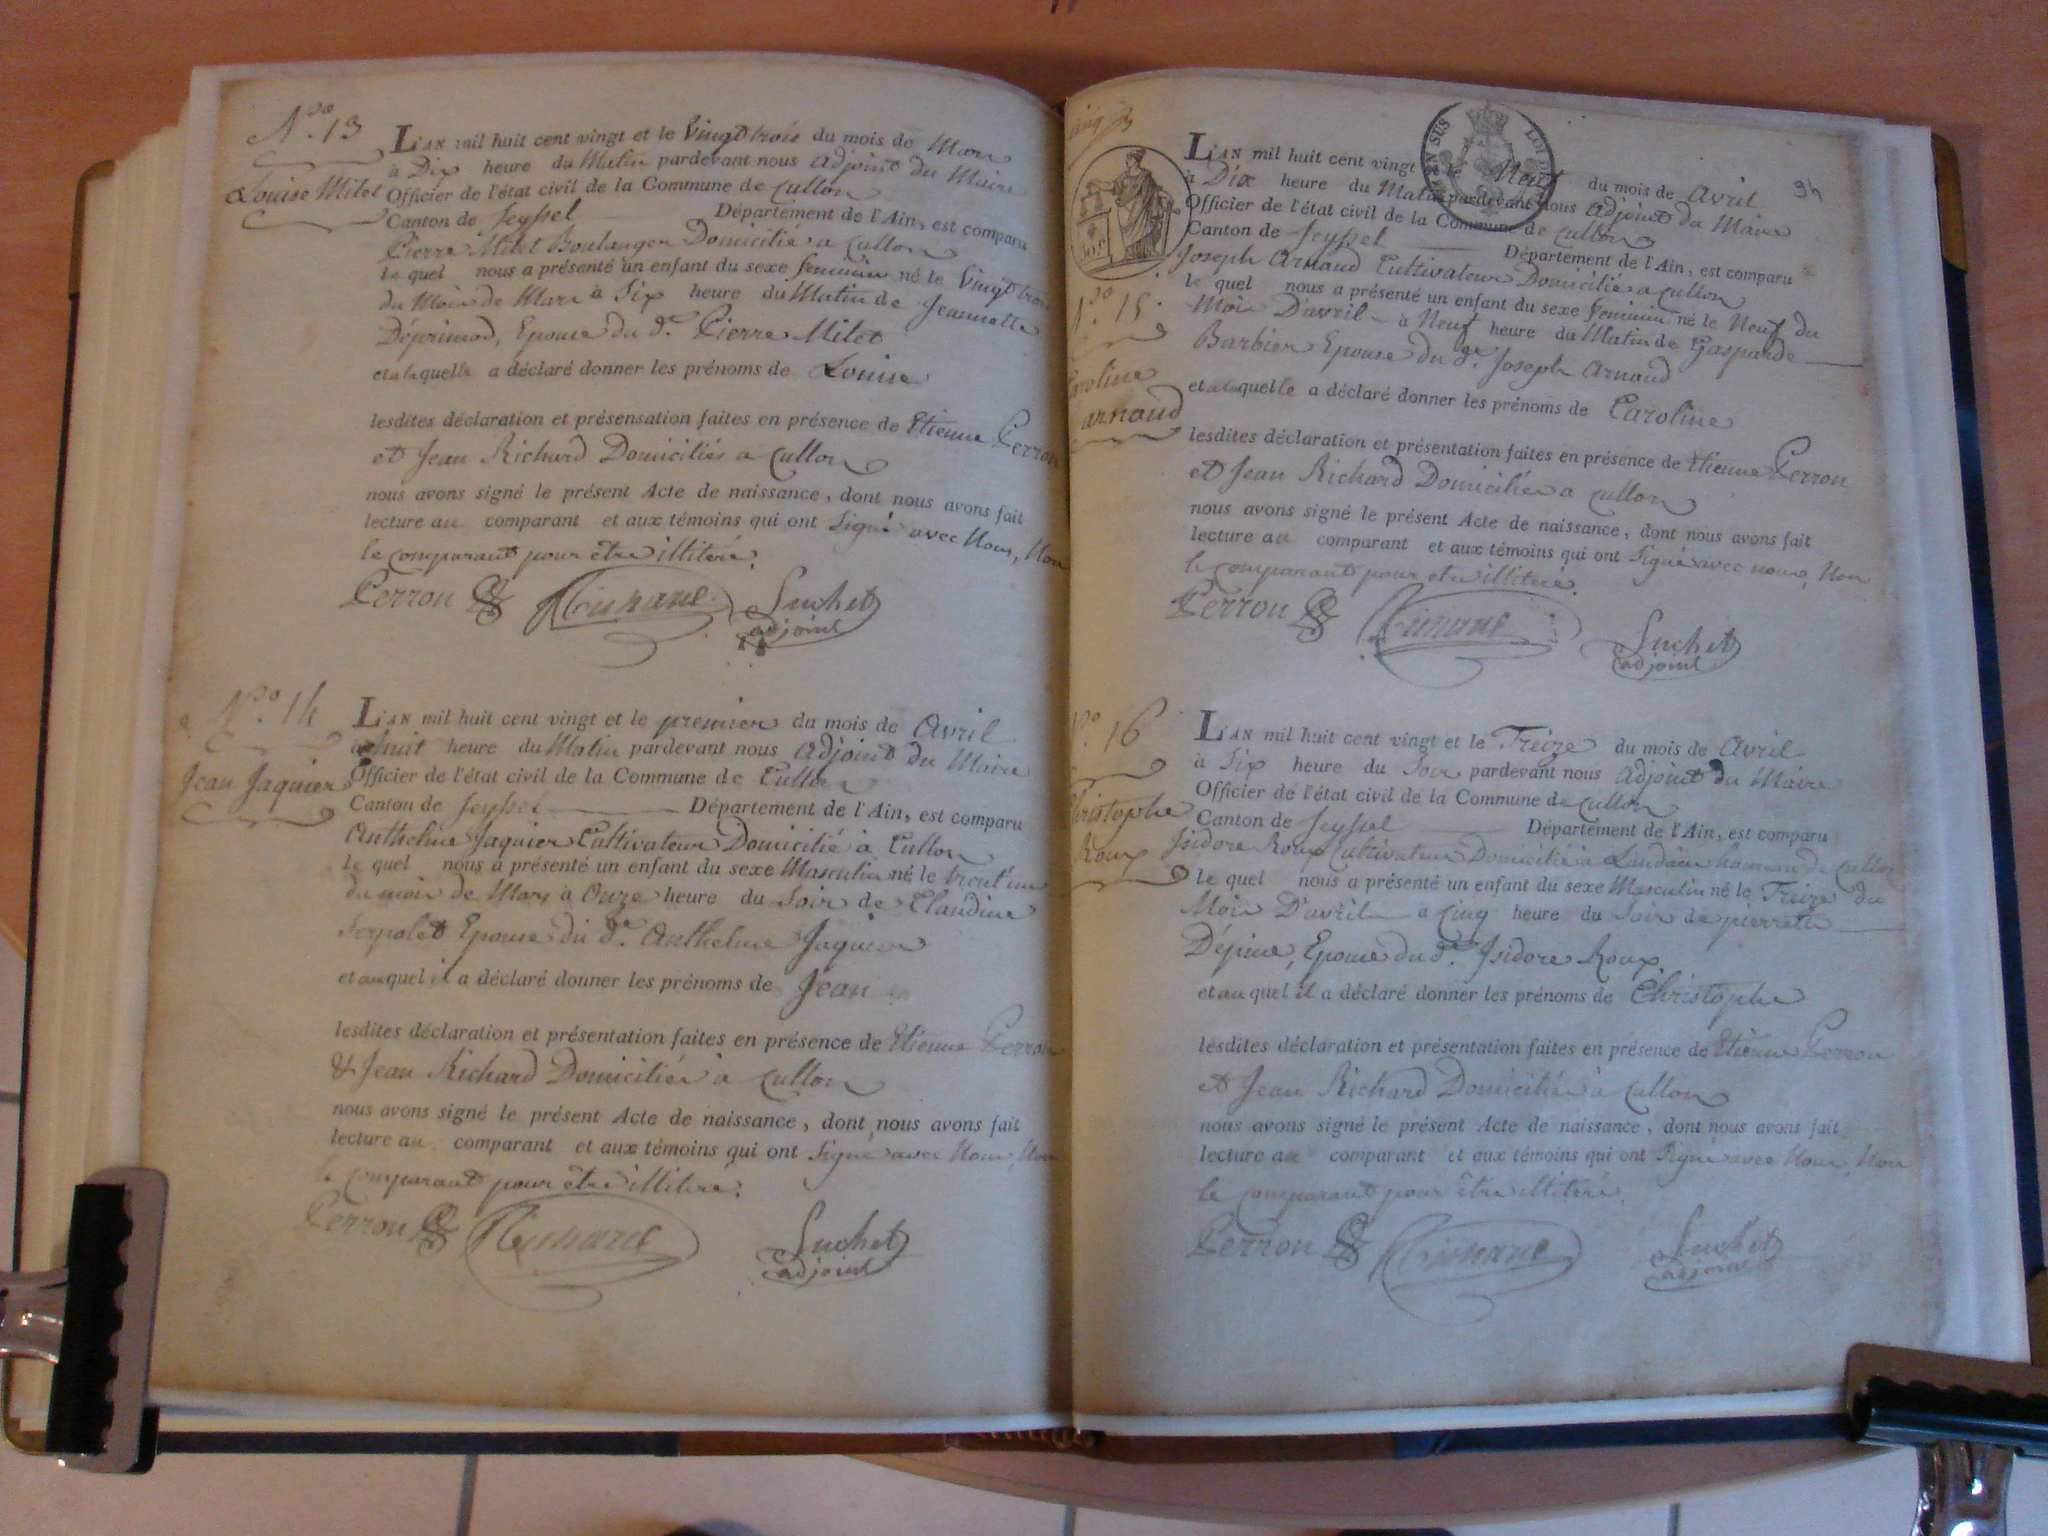 N.ro 13
Louise Milet
L'AN mil huit cent vingt et le Vingt trois du mois de Mars
à Dix heure du Matin pardevant nous adjoint du Maire
Officier de l'état civil de la Commune de Cullon
Canton de Seyssel Département de l'Ain, est comparu
Pierre Milet Boulanger Domicilié a Cullon
le quel nous a présenté un enfant du sexe feminin né le Vingt trois
du Mois de Mars à Six heure du Matin de Jeannette
Déprimod, Epouse du d.t Pierre Milet
et a laquelle a déclaré donner les prénoms de Louise
lesdites déclaration et présensation faites en présence de Etienne Perron
et Jean Richard Domiciliés a Cullon
nous avons signé le présent Acte de naissance, dont nous avons fait
lecture au comparant et aux témoins qui ont Signé avec Nous, Non
le comparant pour être illiteré.
Perron Suchet
adjoint
N.ro 14
Jean Jaquier
L'AN mil huit cent vingt et le premier du mois de Avril
a huit heure du Matin pardevant nous adjoint du Maire
Officier de l'état civil de la Commune de Cullon
Canton de Seyssel Département de l'Ain, est comparu
Anthelme Jaquier Cultivateur Domicilié à Cullon
le quel nous a présenté un enfant du sexe Masculin né le trent'un
du mois de Mars à Onze heure du Soir de Claudine
Serpolet Epouse du d.t Anthelme Jaquier
et auquel il a déclaré donner les prénoms de Jean
lesdites déclaration et présentation faites en présence de Etienne Perron
& Jean Richard Domiciliés à Cullon
nous avons signé le présent Acte de naissance, dont nous avons fait
lecture au comparant et aux témoins qui ont Signé avec Nous, Non
le comparant pour être illiteré.
Perron Suchet
adjoint
94
SUS LOI
N.ro 15.
Caroline
arnaud
L'AN mil huit cent vingt et le Neuf du mois de Avril
à Dix heure du Matin pardevant nous adjoint du Maire
Officier de l'état civil de la Commune de Cullon
Canton de Seyssel Département de l'Ain, est comparu
Joseph Arnaud Cultivateur Domicilié a Cullon
le quel nous a présenté un enfant du sexe feminin né le Neuf du
Mois D'avril à Neuf heure du Matin de Gasparde
Barbier Epouse du d.t Joseph Arnaud
et a laquelle a déclaré donner les prénoms de Caroline
lesdites déclaration et présentation faites en présence de Etienne Perron
et Jean Richard Domiciliés a Cullon
nous avons signé le présent Acte de naissance, dont nous avons fait
lecture au comparant et aux témoins qui ont Signé avec nous, Non
le comparant pour etre illiteré.
Perron Suchet
adjoint
N.o 16
Christophe
Roux
L'AN mil huit cent vingt et le Treize du mois de Avril
à Six heure du Soir pardevant nous adjoint du Maire
Officier de l'état civil de la Commune de Cullon
Canton de Seyssel Département de l'Ain, est comparu
Isidore Roux Cultivateur Domicilié à Landaize hameau de Cullon
le quel nous a présenté un enfant du sexe Masculin né le Treize du
Mois D'avril a Cinq heure du Soir de pierrette
Dépime, Epouse du d.t Isidore Roux
et au quel il a déclaré donner les prénoms de Christophe
lesdites déclaration et présentation faites en présence de Etienne Perron
et Jean Richard Domiciliés à Cullon
nous avons signé le présent Acte de naissance, dont nous avons fait
lecture au comparant et aux témoins qui ont Signé avec Nous, Non
le comparant pour être illiteré.
Perron Suchet
adjoint